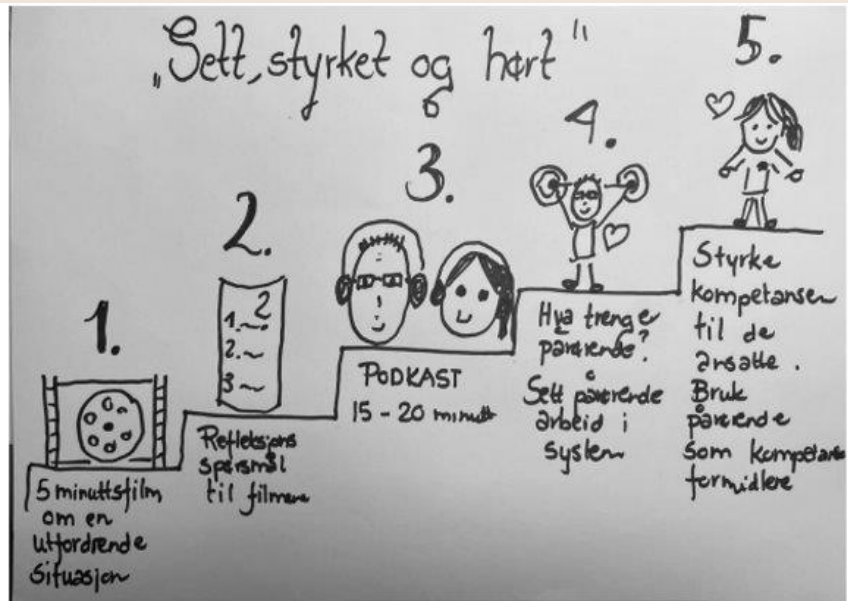 „Sett, styrket og hørt"
1.
5 minuttsfilm
om en
utfordrende
situasjon
2.
?
1.~
2.~
3~
Refleksjons
spørsmål
til filmene
3.
PODKAST
15 - 20 minutt
4.
Hva trenge
pårørende?
Sett pårørende
arbeid i
system
5.
Styrke
kompetansen
til de
ansatte.
Bruk
pårørende
som kompetanse
formidlere